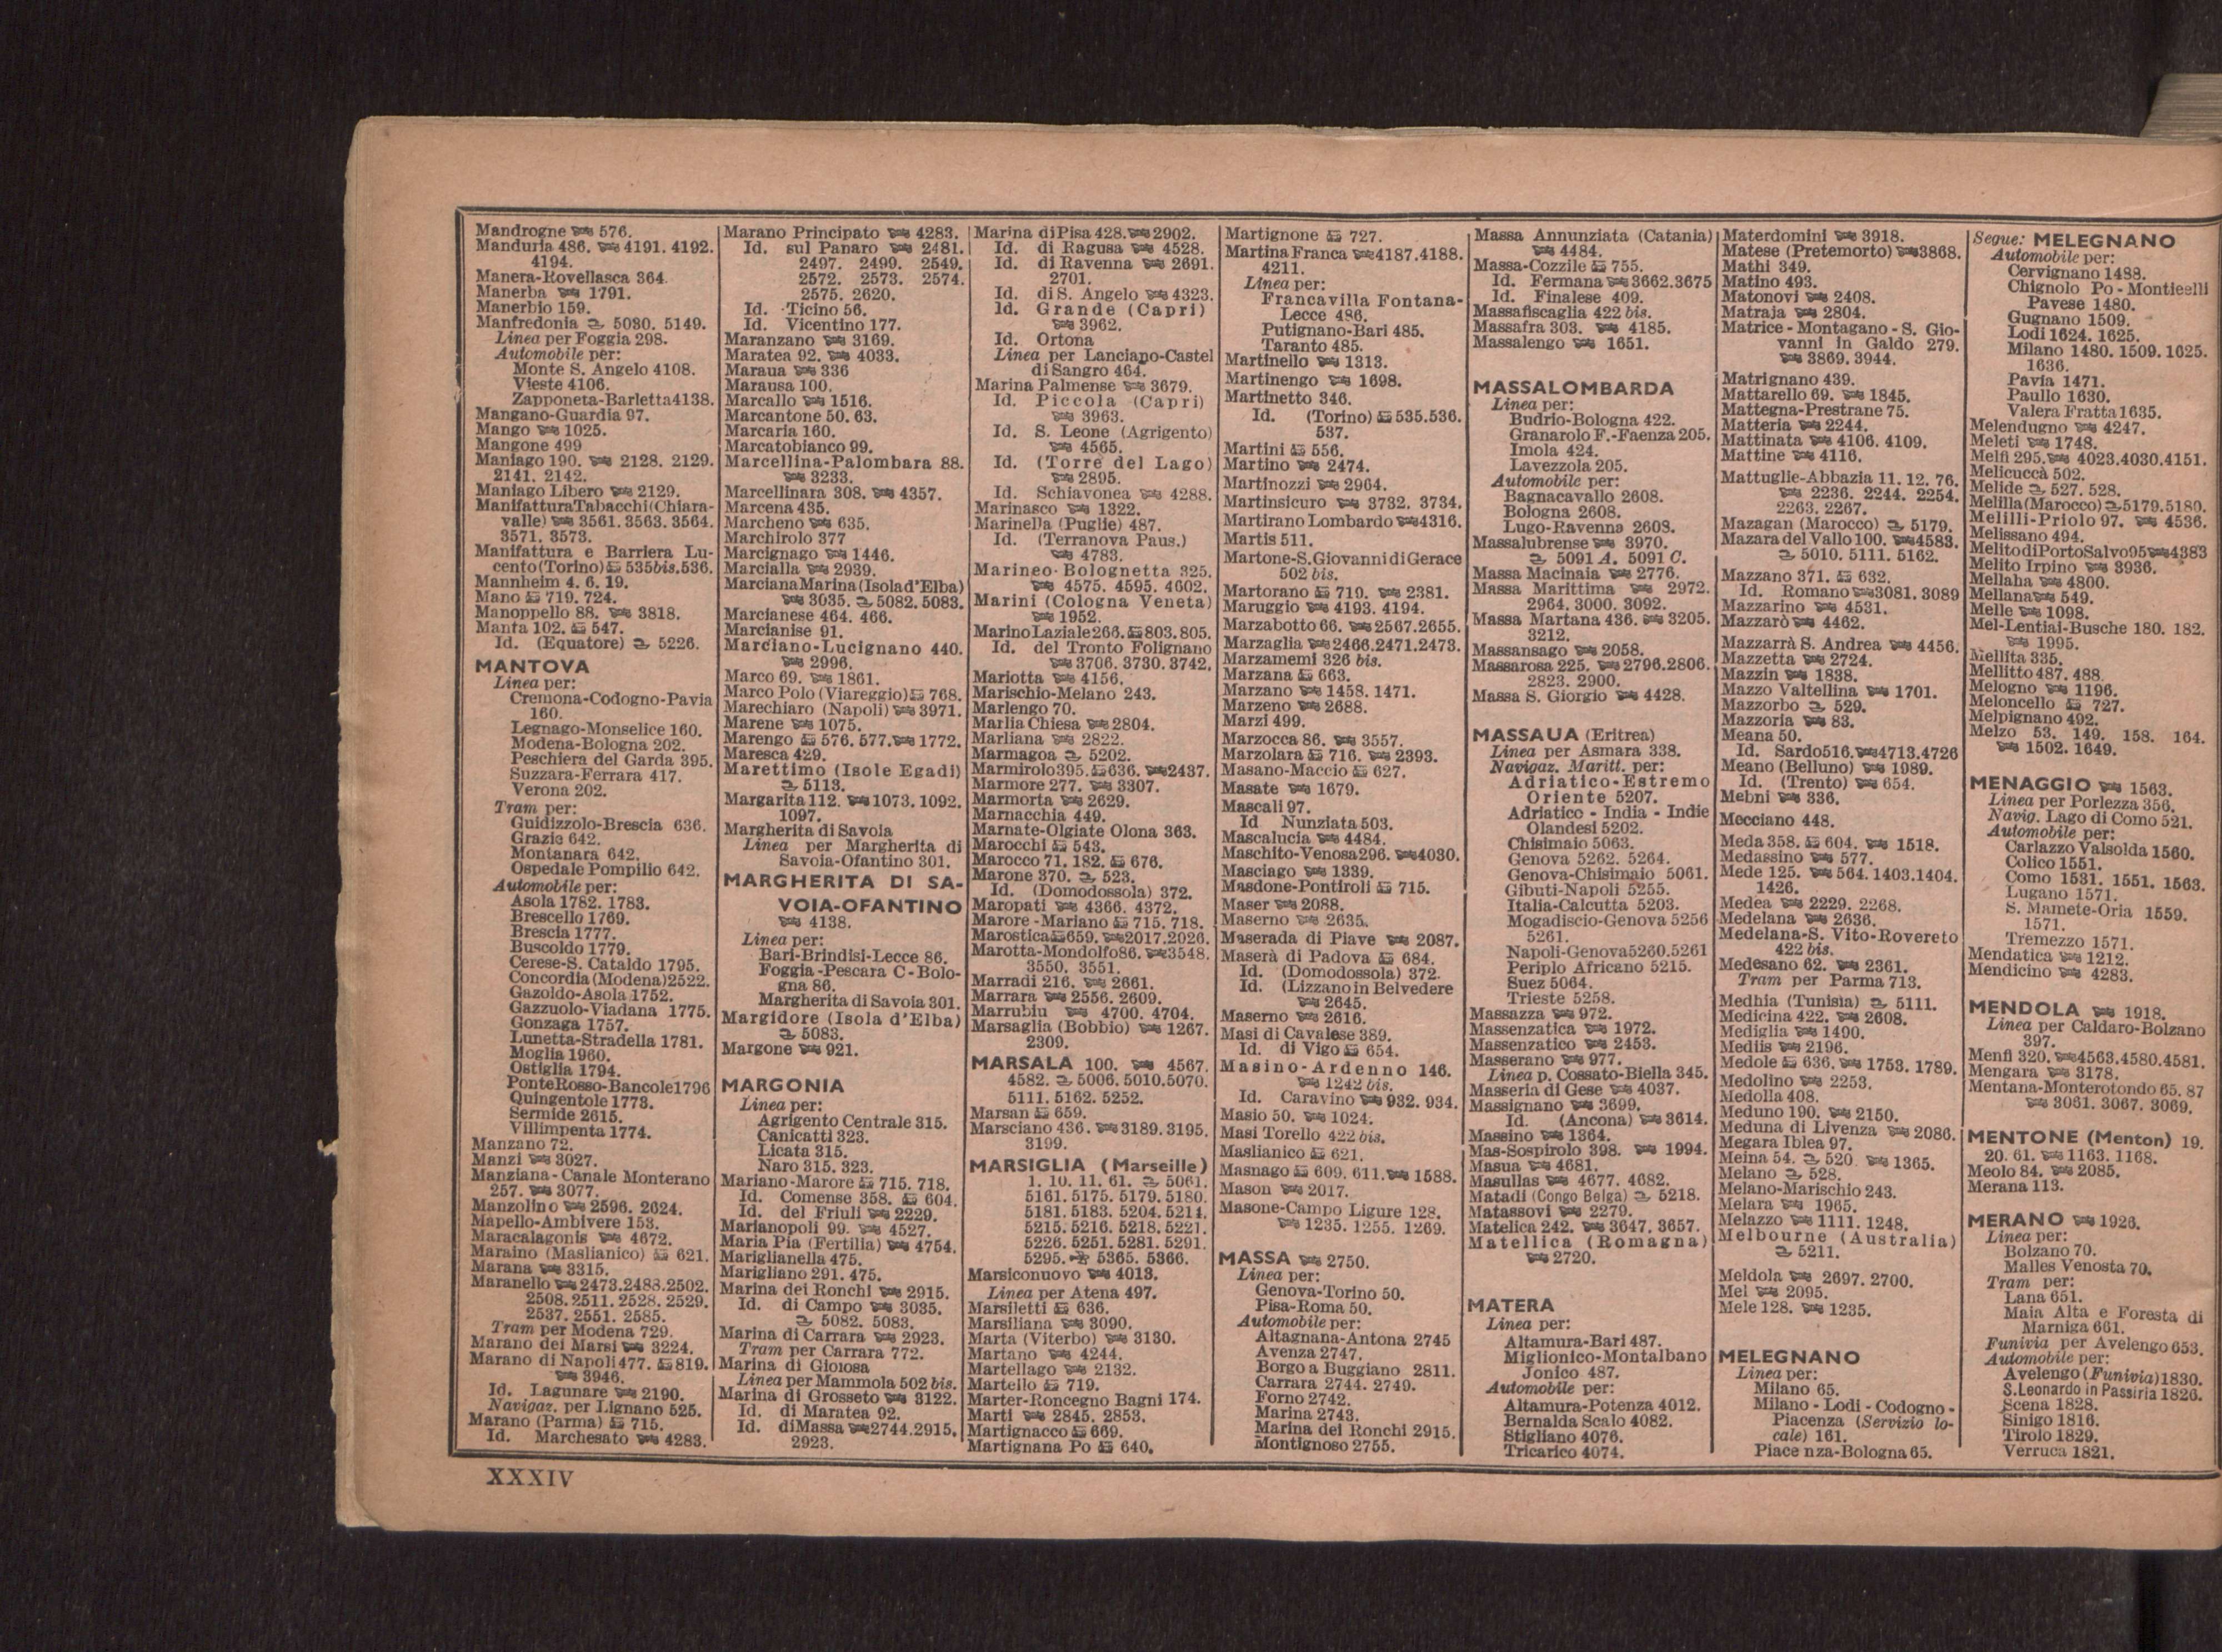 Mandrogne 576.
Manduria 486. 4191. 4192.
4194.
Manera-Rovellasca 364.
Manerba 1791.
Manerbio 159.
Manfredonia 5030. 5149.
Linea per Foggia 298.
Automobile per:
Monte S. Angelo 4108.
Vieste 4106.
Zapponeta-Barletta 4138.
Mangano-Guardia 97.
Mango 1025.
Mangone 499
Maniago 190. 2128. 2129.
2141. 2142.
Maniago Libero 2129.
Manifattura Tabacchi (Chiara-
valle) 3561. 3563. 3564.
3571. 3573.
Manifattura e Barriera Lu-
cento (Torino) 535 bis. 536.
Mannheim 4. 6. 19.
Mano 719. 724.
Manoppello 88. 3818.
Manta 102. 547.
Id. (Equatore) 5226.
MANTOVA
Linea per:
Cremona-Codogno-Pavia
160.
Legnago-Monselice 160.
Modena-Bologna 202.
Peschiera del Garda 395.
Suzzara-Ferrara 417.
Verona 202.
Tram per:
Guidizzolo-Brescia 636.
Grazie 642.
Montanara 642.
Ospedale Pompilio 642.
Automobile per:
Asola 1782. 1783.
Brescello 1769.
Brescia 1777.
Buscoldo 1779.
Cerese-S. Cataldo 1795.
Concordia (Modena) 2522.
Gazoldo-Asola 1752.
Gazzuolo-Viadana 1775.
Gonzaga 1757.
Lunetta-Stradella 1781.
Moglia 1960.
Ostiglia 1794.
Ponte Rosso-Bancole 1796
Quingentole 1773.
Sermide 2615.
Villimpenta 1774.
Manzano 72.
Manzi 3027.
Manziana-Canale Monterano
257. 3077.
Manzolino 2596. 2624.
Mapello-Ambivere 153.
Maracalagonis 4672.
Maraino (Maslianico) 621.
Marana 3315.
Maranello 2473. 2488. 2502.
2508. 2511. 2528. 2529.
2537. 2551. 2585.
Tram per Modena 729.
Marano dei Marsi 3224.
Marano di Napoli 477. 819.
3946.
Id. Lagunare 2190.
Navigaz. per Lignano 525.
Marano (Parma) 715.
Id. Marchesato 4283.
Marano Principato 4283.
Id. sul Panaro 2481.
2497. 2499. 2549.
2572. 2573. 2574.
2575. 2620.
Id. Ticino 56.
Id. Vicentino 177.
Maranzano 3169.
Maratea 92. 4033.
Maraua 336
Marausa 100.
Marcallo 1516.
Marcantone 50. 63.
Marcaria 160.
Marcatobianco 99.
Marcellina-Palombara 88.
3233.
Marcellinara 308. 4357.
Marcena 435.
Marcheno 635.
Marchirolo 377
Marcignago 1446.
Marcialla 2939.
Marciana Marina (Isola d'Elba)
3035. 5082. 5083.
Marcianese 464. 466.
Marcianise 91.
Marciano-Lucignano 440.
2996.
Marco 69. 1861.
Marco Polo (Viareggio) 768.
Marechiaro (Napoli) 3971.
Marene 1075.
Marengo 576. 577. 1772.
Maresca 429.
Marettimo (Isole Egadi)
5113.
Margarita 112. 1073. 1092.
1097.
Margherita di Savoia
Linea per Margherita di
Savoia-Ofantino 301.
MARGHERITA DI SA-
VOIA-OFANTINO
4138.
Linea per:
Bari-Brindisi-Lecce 86.
Foggia-Pescara C-Bolo-
gna 86.
Margherita di Savoia 301.
Margidore (Isola d'Elba)
5083.
Margone 921.
MARGONIA
Linea per:
Agrigento Centrale 315.
Canicattì 323.
Licata 315.
Naro 315. 323.
Mariano-Marore 715. 718.
Id. Comense 358. 604.
Id. del Friuli 2229.
Marianopoli 99. 4527.
Maria Pia (Fertilia) 4754.
Mariglianella 475.
Marigliano 291. 475.
Marina dei Ronchi 2915.
Id. di Campo 3035.
5082. 5083.
Marina di Carrara 2923.
Tram per Carrara 772.
Marina di Gioiosa
Linea per Mammola 502 bis.
Marina di Grosseto 3122.
Id. di Maratea 92.
Id. di Massa 2744. 2915.
2923.
Marina di Pisa 428. 2902.
Id. di Ragusa 4528.
Id. di Ravenna 2691.
2701.
Id. di S. Angelo 4323.
Id. Grande (Capri)
3962.
Id. Ortona
Linea per Lanciano-Castel
di Sangro 464.
Marina Palmense 3679.
Id. Piccola (Capri)
3963.
Id. S. Leone (Agrigento)
4565.
Id. (Torre del Lago)
2895.
Id. Schiavonea 4288.
Marinasco 1322.
Marinella (Puglie) 487.
Id. (Terranova Paus.)
4783.
Marineo-Bolognetta 325.
4575. 4595. 4602.
Marini (Cologna Veneta)
1952.
Marino Laziale 266. 803. 805.
Id. del Tronto Folignano
3706. 3730. 3742.
Mariotta 4156.
Marischio-Melano 243.
Marlengo 70.
Marlia Chiesa 2804.
Marliana 2822.
Marmagoa 5202.
Marmirolo 395. 636. 2437.
Marmore 277. 3307.
Marmorta 2629.
Marnacchia 449.
Marnate-Olgiate Olona 363.
Marocchi 543.
Marocco 71. 182. 676.
Marone 370. 523.
Id. (Domodossola) 372.
Maropati 4366. 4372.
Marore-Mariano 715. 718.
Marostica 659. 2017. 2026.
Marotta-Mondolfo 86. 3548.
3550. 3551.
Marradi 216. 2661.
Marrara 2556. 2609.
Marrubiu 4700. 4704.
Marsaglia (Bobbio) 1267.
2309.
MARSALA 100. 4567.
4582. 5006. 5010. 5070.
5111. 5162. 5252.
Marsan 659.
Marsciano 436. 3189. 3195.
3199.
MARSIGLIA (Marseille)
1. 10. 11. 61. 5061.
5161. 5175. 5179. 5180.
5181. 5183. 5204. 5214.
5215. 5216. 5218. 5221.
5226. 5251. 5281. 5291.
5295. 5365. 5366.
Marsiconuovo 4013.
Linea per Atena 497.
Marsiletti 636.
Marsiliana 3090.
Marta (Viterbo) 3130.
Martano 4244.
Martellago 2132.
Martello 719.
Marter-Roncegno Bagni 174.
Marti 2845. 2853.
Martignacco 669.
Martignana Po 640.
Martignone 727.
Martina Franca 4187. 4188.
4211.
Linea per:
Francavilla Fontana-
Lecce 486.
Putignano-Bari 485.
Taranto 485.
Martinello 1313.
Martinengo 1698.
Martinetto 346.
Id. (Torino) 535. 536.
537.
Martini 556.
Martino 2474.
Martinozzi 2964.
Martinsicuro 3732. 3734.
Martirano Lombardo 4316.
Martis 511.
Martone-S. Giovanni di Gerace
502 bis.
Martorano 719. 2381.
Maruggio 4193. 4194.
Marzabotto 66. 2567. 2655.
Marzaglia 2466. 2471. 2473.
Marzamemi 326 bis.
Marzana 663.
Marzano 1458. 1471.
Marzeno 2688.
Marzi 499.
Marzocca 86. 3557.
Marzolara 716. 2393.
Masano-Maccio 627.
Masate 1679.
Mascali 97.
Id Nunziata 503.
Mascalucia 4484.
Maschito-Venosa 296. 4030.
Masciago 1339.
Masdone-Pontiroli 715.
Maser 2088.
Maserno 2635.
Maserada di Piave 2087.
Maserà di Padova 684.
Id. (Domodossola) 372.
Id. (Lizzano in Belvedere
2645.
Maserno 2616.
Masi di Cavalese 389.
Id. di Vigo 654.
Masino-Ardenno 146.
1242 bis.
Id. Caravino 932. 934.
Masio 50. 1024.
Masi Torello 422 bis.
Maslianico 621.
Masnago 609. 611. 1588.
Mason 2017.
Masone-Campo Ligure 128.
1235. 1255. 1269.
MASSA 2750.
Linea per:
Genova-Torino 50.
Pisa-Roma 50.
Automobile per:
Altagnana-Antona 2745
Avenza 2747.
Borgo a Buggiano 2811.
Carrara 2744. 2749.
Forno 2742.
Marina 2743.
Marina dei Ronchi 2915.
Montignoso 2755.
Massa Annunziata (Catania)
4484.
Massa-Cozzile 755.
Id. Fermana 3662. 3675
Id. Finalese 409.
Massafiscaglia 422 bis.
Massafra 303. 4185.
Massalengo 1651.
MASSALOMBARDA
Linea per:
Budrio-Bologna 422.
Granarolo F.-Faenza 205.
Imola 424.
Lavezzola 205.
Automobile per:
Bagnacavallo 2608.
Bologna 2608.
Lugo-Ravenna 2608.
Massalubrense 3970.
5091 A. 5091 C.
Massa Macinaia 2776.
Massa Marittima 2972.
2964. 3000. 3092.
Massa Martana 436. 3205.
3212.
Massansago 2058.
Massarosa 225. 2796. 2806.
2823. 2900.
Massa S. Giorgio 4428.
MASSAUA (Eritrea)
Linea per Asmara 338.
Navigaz. Maritt. per:
Adriatico-Estremo
Oriente 5207.
Adriatico-India-Indie
Olandesi 5202.
Chisimaio 5063.
Genova 5262. 5264.
Genova-Chisimaio 5061.
Gibuti-Napoli 5255.
Italia-Calcutta 5203.
Mogadiscio-Genova 5256
5261.
Napoli-Genova 5260. 5261
Periplo Africano 5215.
Suez 5064.
Trieste 5258.
Massazza 972.
Massenzatica 1972.
Massenzatico 2453.
Masserano 977.
Linea p. Cossato-Biella 345.
Masseria di Gese 4037.
Massignano 3699.
Id. (Ancona) 3614.
Massino 1364.
Mas-Sospirolo 398. 1994.
Masua 4681.
Masullas 4677. 4682.
Matadi (Congo Belga) 5218.
Matassovi 2279.
Matelica 242. 3647. 3657.
Matellica (Romagna)
2720.
MATERA
Linea per:
Altamura-Bari 487.
Miglionico-Montalbano
Jonico 487.
Automobile per:
Altamura-Potenza 4012.
Bernalda Scalo 4082.
Stigliano 4076.
Tricarico 4074.
Materdomini 3918.
Matese (Pretemorto) 3868.
Mathi 349.
Matino 493.
Matonovi 2408.
Matraja 2804.
Matrice-Montagano-S. Gio-
vanni in Galdo 279.
3869. 3944.
Matrignano 439.
Mattarello 69. 1845.
Mattegna-Prestrane 75.
Matteria 2244.
Mattinata 4106. 4109.
Mattine 4116.
Mattuglie-Abbazia 11. 12. 76.
2236. 2244. 2254.
2263. 2267.
Mazagan (Marocco) 5179.
Mazara del Vallo 100. 4583.
5010. 5111. 5162.
Mazzano 371. 632.
Id. Romano 3081. 3089
Mazzarino 4531.
Mazzarò 4462.
Mazzarrà S. Andrea 4456.
Mazzetta 2724.
Mazzin 1838.
Mazzo Valtellina 1701.
Mazzorbo 529.
Mazzoria 83.
Meana 50.
Id. Sardo 516. 4713. 4726
Meano (Belluno) 1989.
Id. (Trento) 654.
Mebni 336.
Mecciano 448.
Meda 358. 604. 1518.
Medassino 577.
Mede 125. 564. 1403. 1404.
1426.
Medea 2229. 2268.
Medelana 2636.
Medelana-S. Vito-Rovereto
422 bis.
Medesano 62. 2361.
Tram per Parma 713.
Medhia (Tunisia) 5111.
Medicina 422. 2608.
Mediglia 1490.
Mediis 2196.
Medole 636. 1753. 1789.
Medolino 2253.
Medolla 408.
Meduno 190. 2150.
Meduna di Livenza 2086.
Megara Iblea 97.
Meina 54. 520. 1365.
Melano 528.
Melano-Marischio 243.
Melara 1965.
Melazzo 1111. 1248.
Melbourne (Australia)
5211.
Meldola 2697. 2700.
Mel 2095.
Mele 128. 1235.
MELEGNANO
Linea per:
Milano 65.
Milano-Lodi-Codogno-
Piacenza (Servizio lo-
cale) 161.
Piacenza-Bologna 65.
Segue: MELEGNANO
Automobile per:
Cervignano 1488.
Chignolo Po-Monticelli
Pavese 1480.
Gugnano 1509.
Lodi 1624. 1625.
Milano 1480. 1509. 1625.
1636.
Pavia 1471.
Paullo 1630.
Valera Fratta 1635.
Melendugno 4247.
Meleti 1748.
Melfi 295. 4023. 4030. 4151.
Melicuccà 502.
Melide 527. 528.
Melilla (Marocco) 5179. 5180.
Melilli-Priolo 97. 4536.
Melissano 494.
Melito di Porto Salvo 95 4383
Melito Irpino 3936.
Mellaha 4800.
Mellana 549.
Melle 1098.
Mel-Lentiai-Busche 180. 182.
1995.
Mellita 335.
Mellitto 487. 488.
Melogno 1196.
Meloncello 727.
Melpignano 492.
Melzo 53. 149. 158. 164.
1502. 1649.
MENAGGIO 1563.
Linea per Porlezza 356.
Navig. Lago di Como 521.
Automobile per:
Carlazzo Valsolda 1560.
Colico 1551.
Como 1531. 1551. 1563.
Lugano 1571.
S. Mamete-Oria 1559.
1571.
Tremezzo 1571.
Mendatica 1212.
Mendicino 4283.
MENDOLA 1918.
Linea per Caldaro-Bolzano
397.
Menfi 320. 4563. 4580. 4581.
Mengara 3178.
Mentana-Monterotondo 65. 87
3061. 3067. 3069.
MENTONE (Menton) 19.
20. 61. 1163. 1168.
Meolo 84. 2085.
Merana 113.
MERANO 1926.
Linea per:
Bolzano 70.
Malles Venosta 70.
Tram per:
Lana 651.
Maia Alta e Foresta di
Marniga 661.
Funivia per Avelengo 653.
Automobile per:
Avelengo (Funivia) 1830.
S. Leonardo in Passiria 1826.
Scena 1828.
Sinigo 1816.
Tirolo 1829.
Verruca 1821.
XXXIV